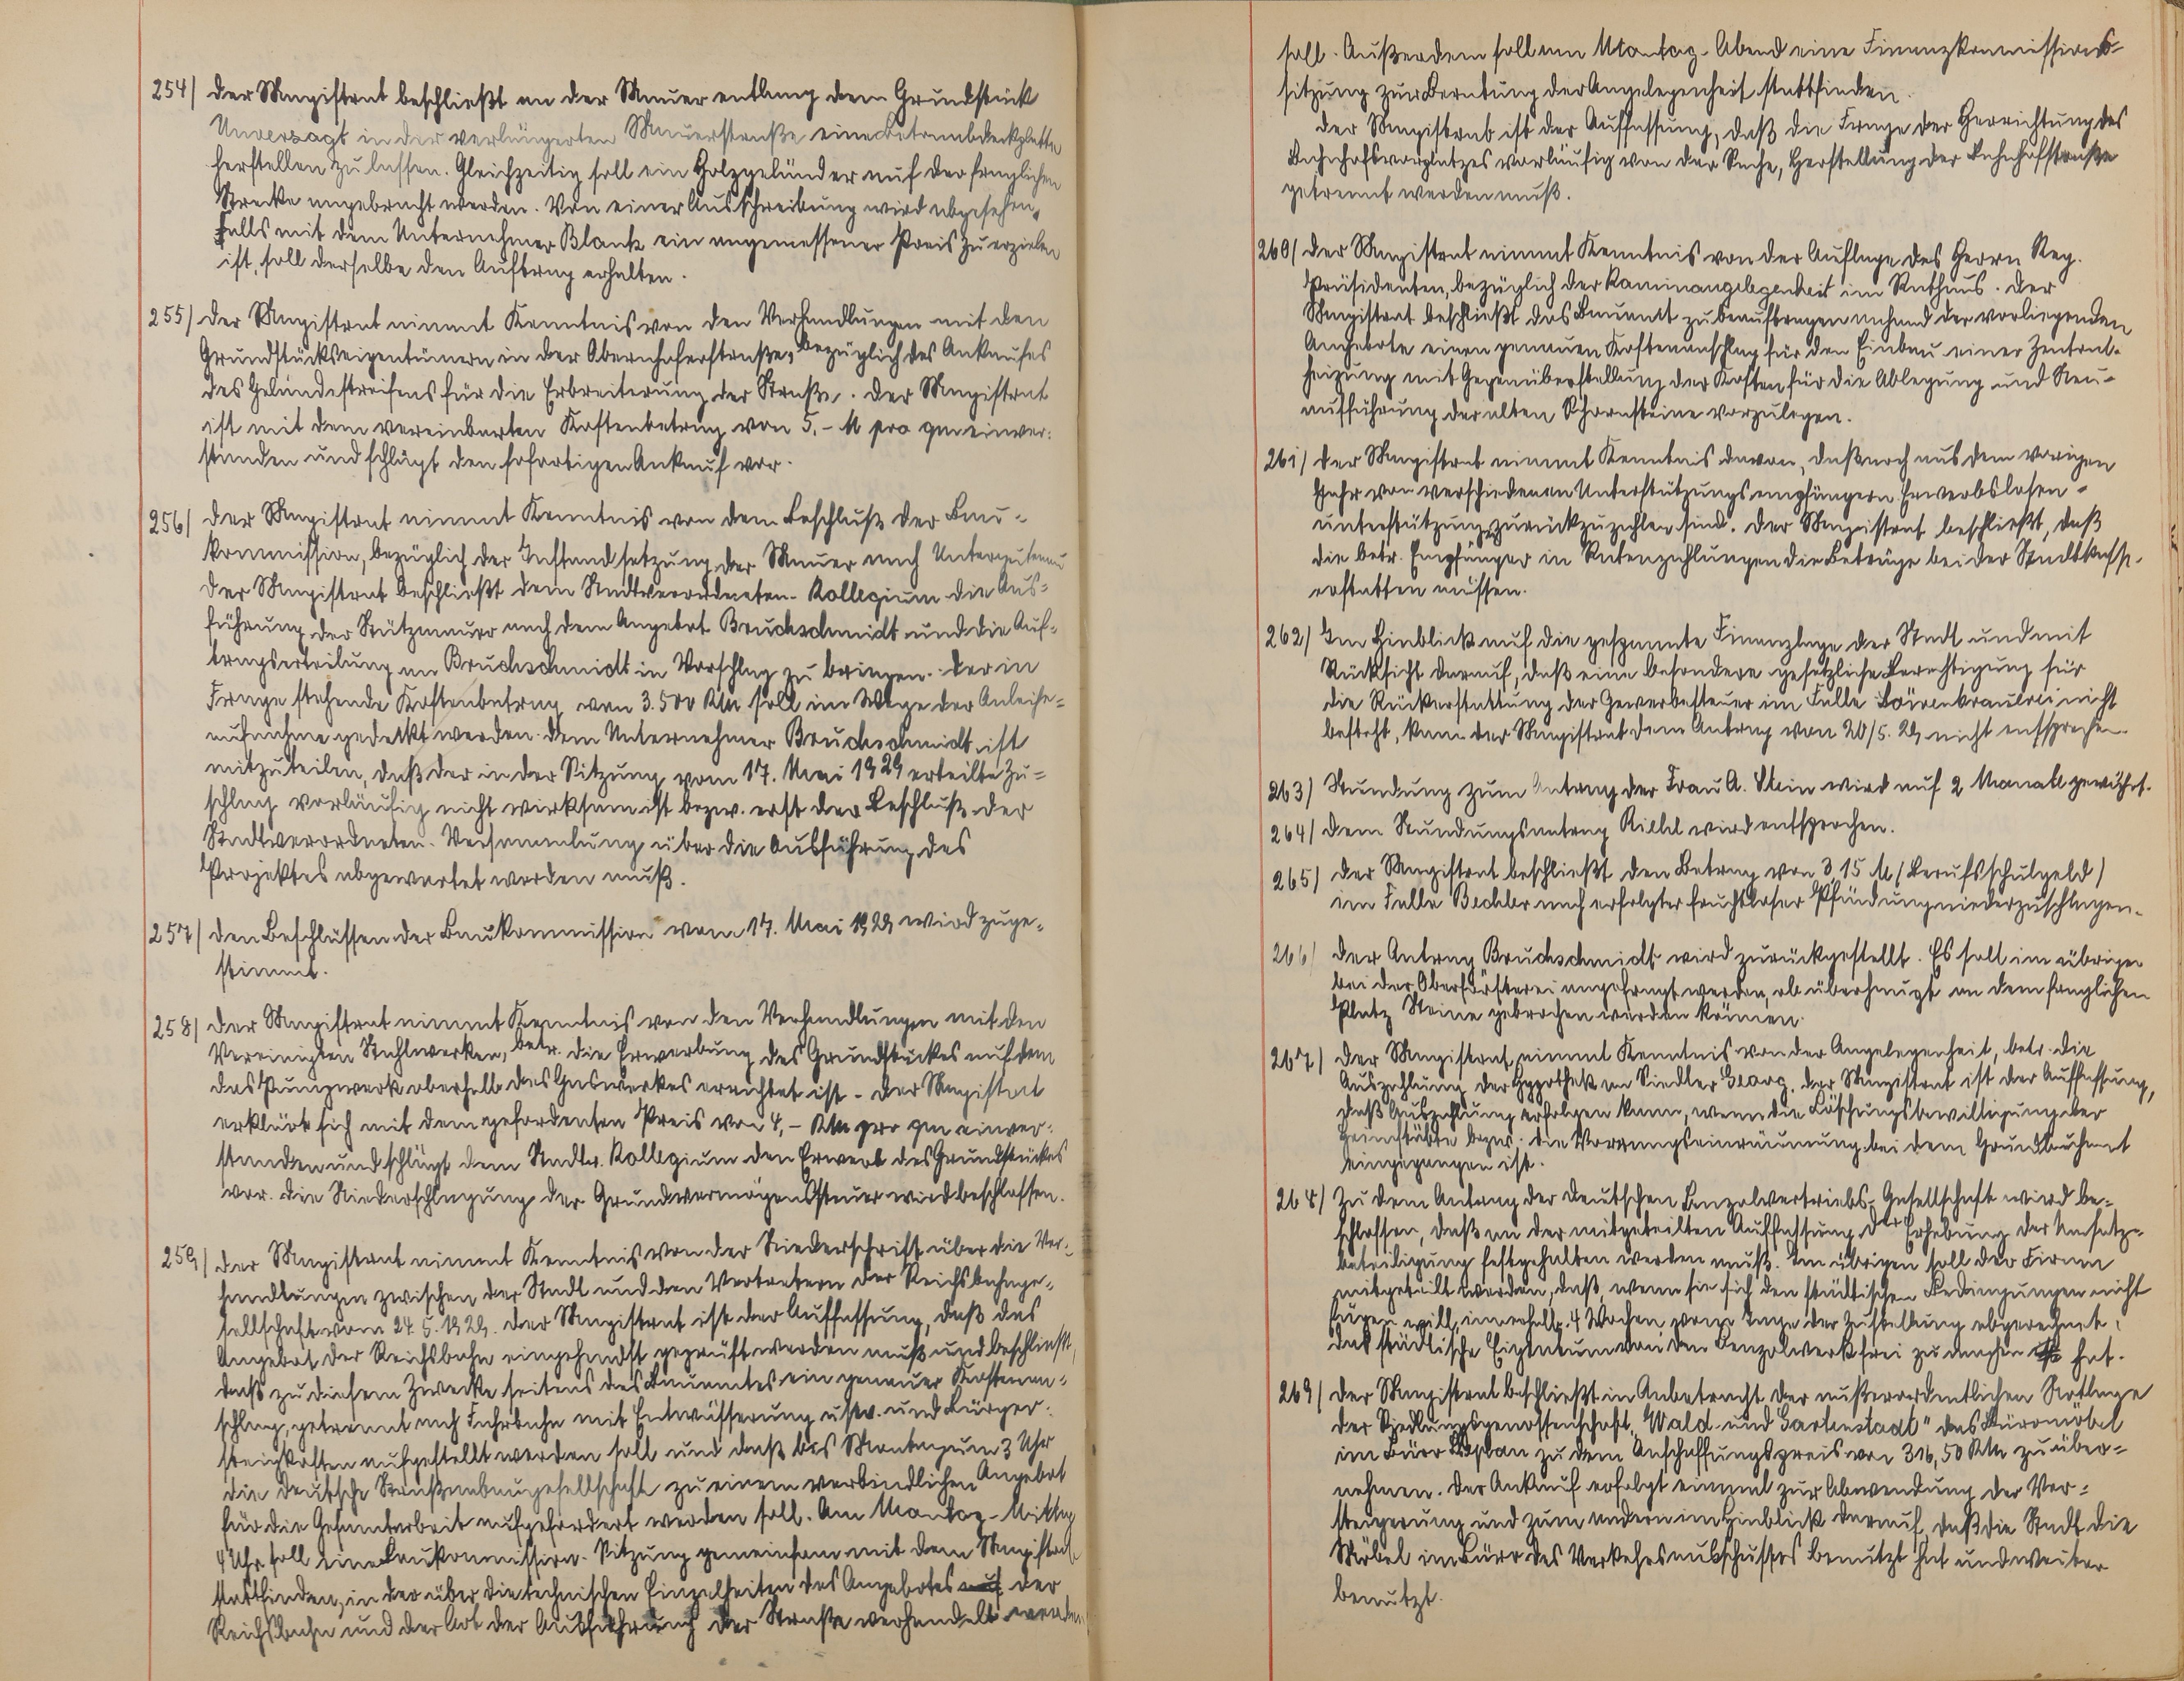 254/ Der Magistrat beschließt an der Mauer entlang dem Grundstück
Unversagt in der verlängerten Mauerstraße eine Betonabdeckplatte
herstellen zu lassen. Gleichzeitig soll ein Holzgeländer auf der fraglichen
Strecke angebracht werden. Von einer Ausschreibung wird abgesehen.
Falls mit dem Unternehmer Blank ein angemessener Preis zu erzielen
ist, soll derselbe den Auftrag erhalten.
255/ Der Magistrat nimmt Kenntnis von den Verhandlungen mit den
Grundstückseigentümern in der Obernhoferstraße, bezüglich des Ankaufes
des Geländestreifens für die Erbreiterung der Straße. Der Magistrat
ist mit dem vereinbarten Kostenbetrag von 5,- M pro qm einver-
standen und schlägt den sofortigen Ankauf vor.
256/ Der Magistrat nimmt Kenntnis von dem Beschluß der Bau-
kommission, bezüglich der Instandsetzung der Mauer nach Unterguteneu
Der Magistrat beschließt dem Stadtverordneten-Kollegium die Aus-
führung der Stützmauer nach dem Angebot Bruchschmidt und die Auf-
tragserteilung an Bruchschmidt in Vorschlag zu bringen. Der in
Frage stehende Kostenbetrag von 3.500 RM soll im Wege der Anleihe-
aufnahme gedeckt werden. Dem Unternehmer Bruchschmidt ist
mitzuteilen, daß der in der Sitzung vom 17. Mai 1929 erteilte Zu-
schlag vorläufig nicht wirksam ist bezw. erst der Beschluß der
Stadtverordneten-Versammlung über die Ausführung des
Projektes abgewartet werden muß.
257/ Den Beschlüssen der Baukommission vom 17. Mai 1929 wird zuge-
stimmt.
258/ Der Magistrat nimmt Kenntnis von den Verhandlungen mit den
Vereinigten Stahlwerken, betr. die Erwerbung des Grundstückes auf dem
das Pumpwerk oberhalb des Gaswerkes errichtet ist. Der Magistrat
erklärt sich mit dem geforderten Preis von 4,- RM pro qm einver-
standen und schlägt dem Stadtv. Kollegium den Erwerb des Grundstückes
vor. Die Niederschlagung der Grundvermögenssteuer wird beschlossen.
259/ Der Magistrat nimmt Kenntnis von der Niederschrift über die Ver-
handlungen zwischen der Stadt und den Vertretern der Reichsbahnge-
sellschaft vom 24.5.1929. Der Magistrat ist der Auffassung, daß das
Angebot der Reichsbahn eingehendst geprüft werden muß und beschliesst,
daß zu diesem Zwecke seitens des Bauamtes ein genauer Kostenan-
schlag, getrennt nach Fahrbahn mit Entwässerung usw. und Bürger-
steigkosten aufgestellt werden soll und daß bis Montag um 3 Uhr
die Deutsche Straßenbaugesellschaft zu einem verbindlichen Angebot
für die Gesamtarbeit aufgefordert werden soll. Am Montag-Mittag
4 Uhr soll eine Baukommission-Sitzung gemeinsam mit dem Magistrat
stattfinden, in der über die technischen Einzelheiten des Angebotes der
Reichsbahn und der Art der Ausführung der Straße verhandelt werden
soll. Außerdem soll am Montag-Abend eine Finanzkommissions-
sitzung zur Beratung der Angelegenheit stattfinden.
Der Magistrat ist der Auffassung, daß die Frage der Herrichtung des
Bahnhofsvorplatzes vorläufig von der Sache, Herstellung der Bahnhofstraße
getrennt werden muß.
260/ Der Magistrat nimmt Kenntnis von der Auflage des Herrn Reg.
Präsidenten, bezüglich der Kaminangelegenheit im Rathaus. Der
Magistrat beschließt das Bauamt zu beauftragen anhand der vorliegenden
Angebote einen genauen Kostenanschlag für den Einbau einer Zentral-
heizung mit Gegenüberstellung der Kosten für die Ablegung und Neu-
aufführung der alten Schornsteine vorzulegen.
261/ Der Magistrat nimmt Kenntnis davon, daß noch aus dem vorigen
Jahr von verschiedenen Unterstützungsempfängern Erwerbslosen-
unterstützung zurückzuzahlen sind. Der Magistrat beschließt, daß
die betr. Empfänger in Ratenzahlungen die Beträge bei der Stadtkasse
erstatten müssen.
262/ Im Hinblick auf die gespannte Finanzlage der Stadt und mit
Rücksicht darauf, daß eine besondere gesetzliche Berechtigung für
die Rückerstattung der Gewerbesteuer im Falle Löwenbrauerei nicht
besteht, kann der Magistrat dem Antrag von 20/5.29 nicht entsprechen.
263/ Stundung zum Antrag der Frau A. Stein wird auf 2 Monate gewährt.
264/ Dem Stundungsantrag Riehl wird entsprochen.
265/ Der Magistrat beschließt den Betrag von 3,15 M (Berufsschulgeld)
im Falle Bechler nach erfolgter fruchtloser Pfändung niederzuschlagen.
266/ Der Antrag Bruchschmidt wird zurückgestellt. Es soll im übrigen
bei der Oberförsterei angefragt werden, ob überhaupt an dem fraglichen
Platz Steine gebrochen werden können.
267/ Der Magistrat nimmt Kenntnis von der Angelegenheit, betr. die
Auszahlung der Hypothek an Siedler Georg. Der Magistrat ist der Auffassung,
daß Auszahlung erfolgen kann, wenn die Löschungsbewilligung der
Heimstätte bezw. die Vorrangseinräumung bei dem Grundbuchamt
eingegangen ist.
268/ Zu dem Antrag der Deutschen Benzolvertriebs-Gesellschaft wird be-
schlossen, daß an der mitgeteilten Auffassung der Erhebung der Umsatz-
beteiligung festgehalten werden muß. Im übrigen soll der Firma
mitgeteilt werden, daß, wenn sie sich den städtischen Bedingungen nicht
fügen will, innerhalb 4 Wochen vom Tage der Zustellung abgerechnet,
das städtische Eigentum von dem Benzolwerk frei zu machen hat.
269/ Der Magistrat beschließt in Anbetracht der außerordentlichen Notlage
der Siedlungsgenossenschaft „Wald- und Gartenstadt" das Büromöbel
im Büro zu dem Anschaffungspreis von 316,50 RM zu über-
nehmen. Der Ankauf erfolgt einmal zur Abwendung der Ver-
steigerung und zum andern im Hinblick darauf, daß die Stadt die
Möbel im Büro des Verkehrsausschusses benutzt hat und weiter
benutzt.